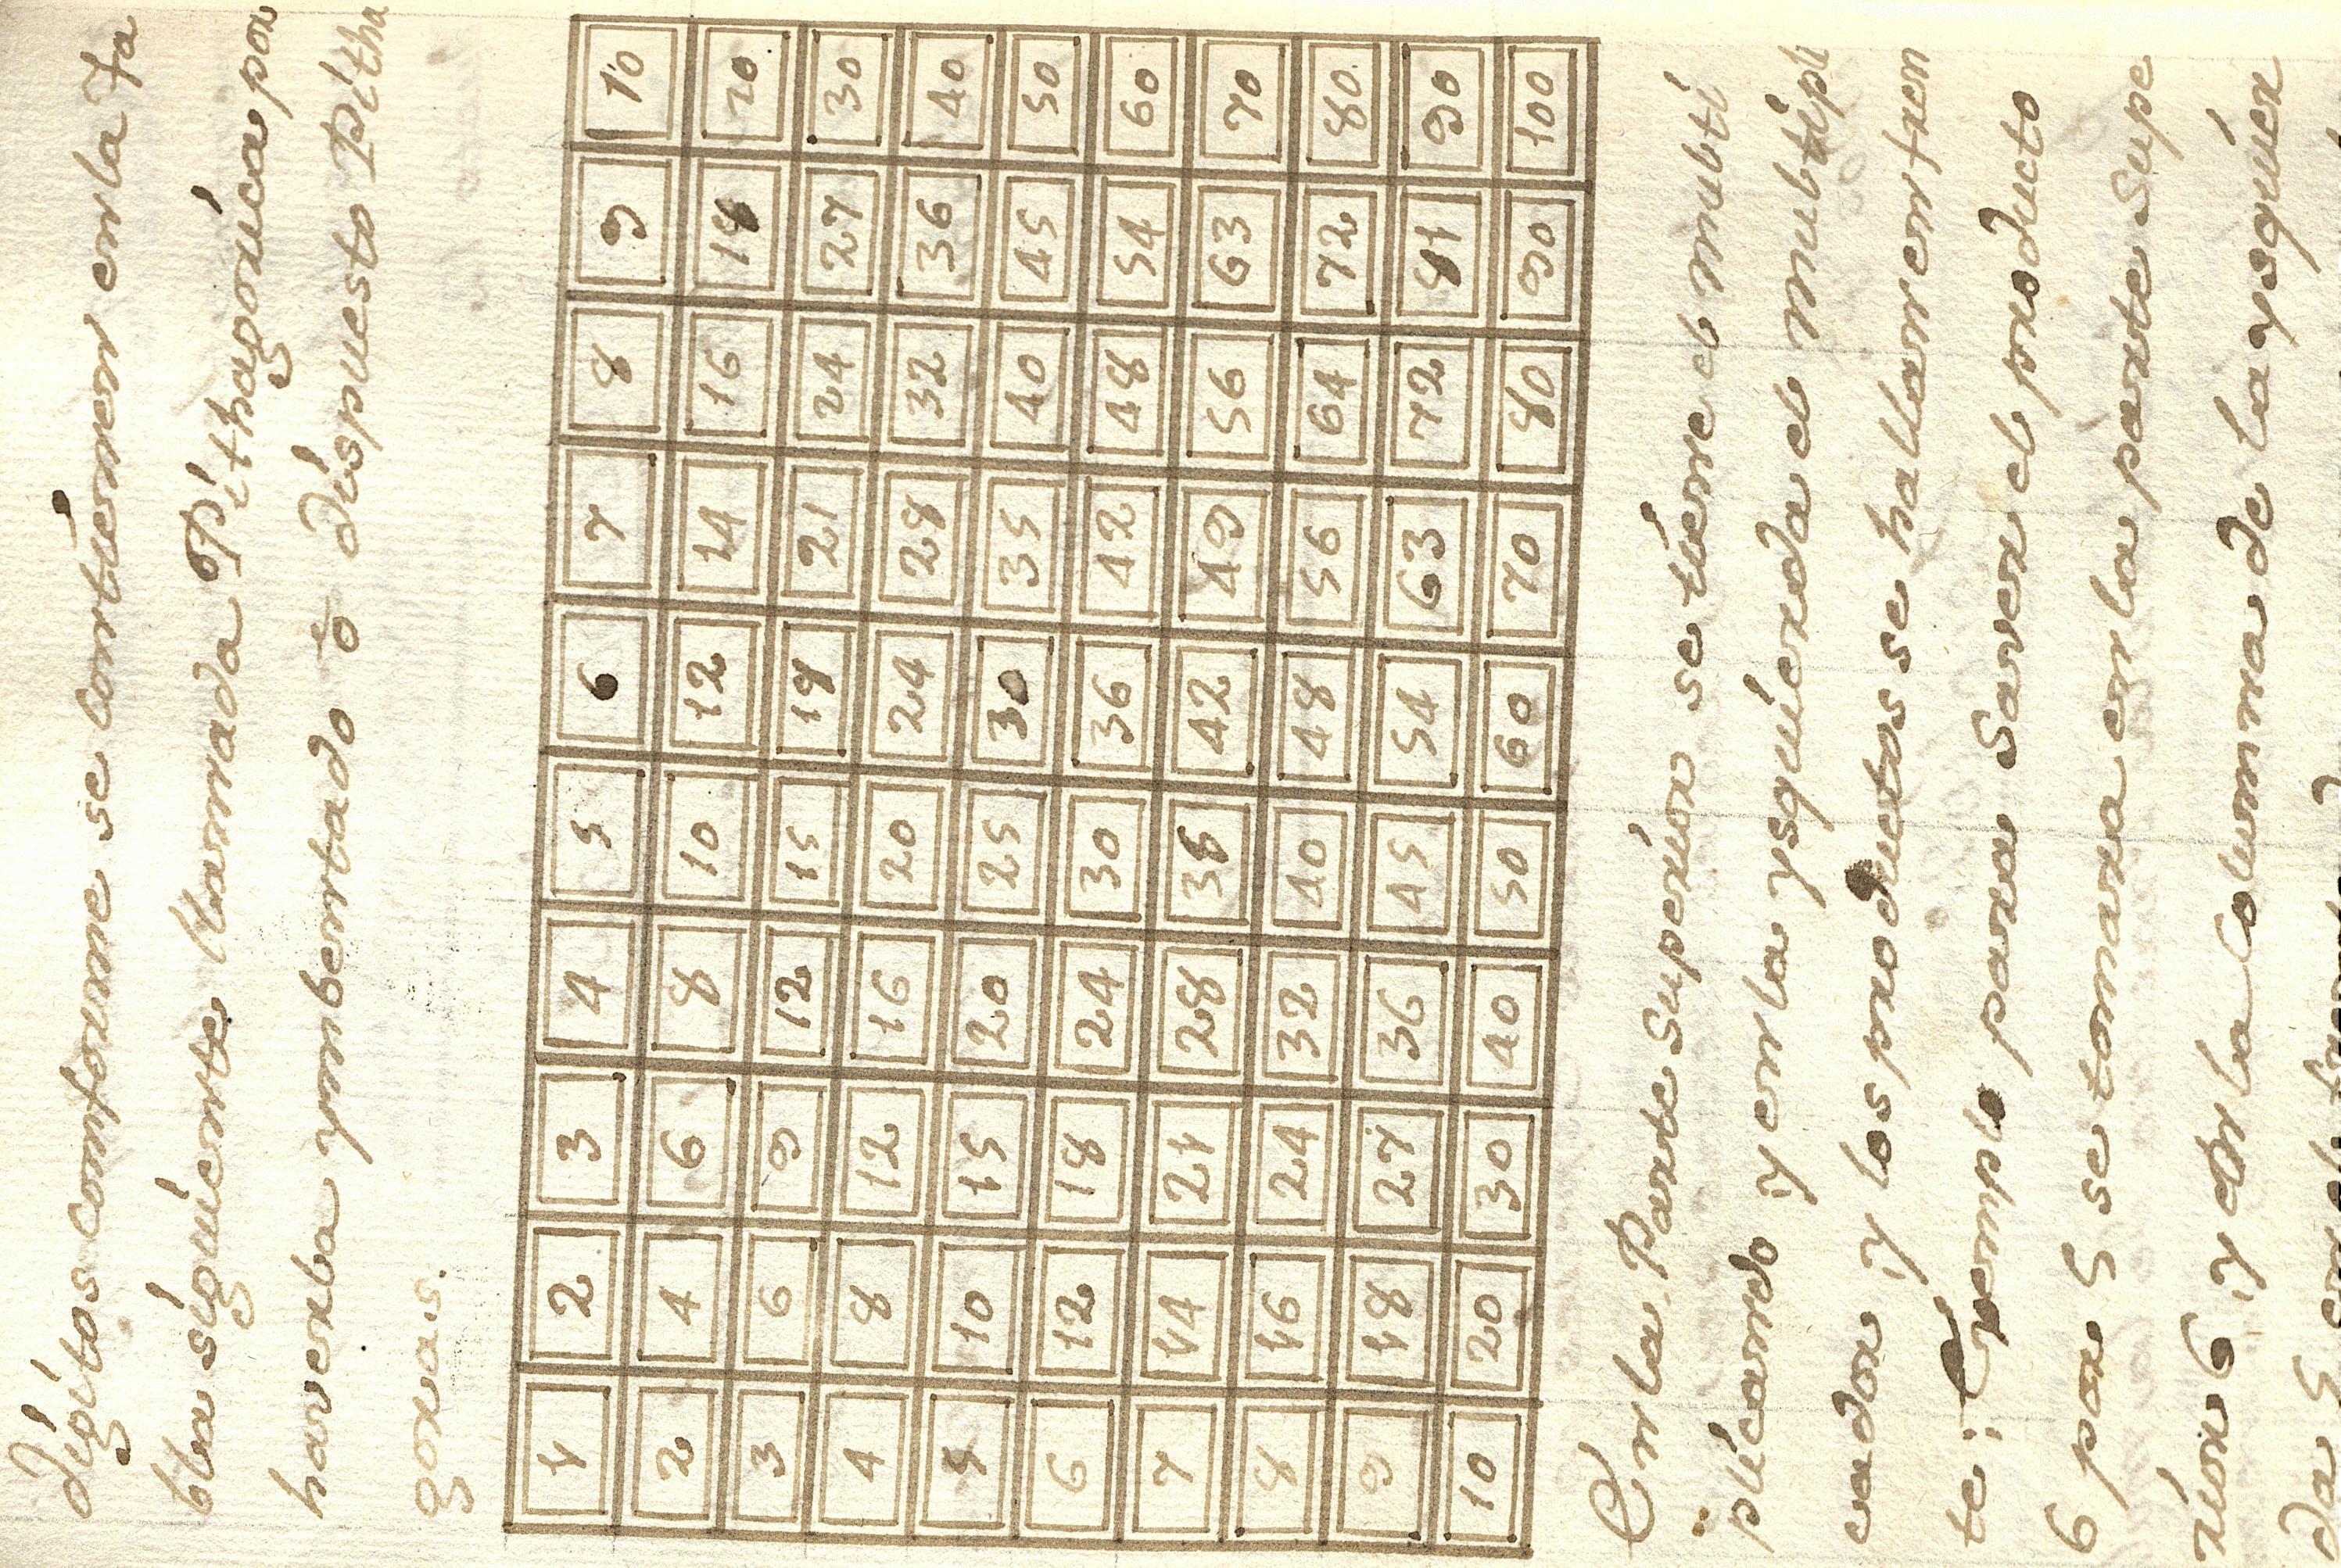 digitos comforme se contienen en la Ta
bla siguiente llamada Pithagorica por
haverla ymbentado ò dispuesto Pitha
goras.
1 2 3 4 5 6 7 8 9 10
2 4 6 8 10 12 14 16 18 20
3 6 9 12 15 18 21 24 27 30
4 8 12 16 20 24 28 32 36 40
5 10 15 20 25 30 35 40 45 50
6 12 18 24 30 36 42 48 54 60
7 14 21 28 35 42 49 56 63 70
8 16 24 32 40 48 56 64 72 80
9 18 27 36 45 54 63 72 81 90
10 20 30 40 50 60 70 80 90 100
En la Parte Superior se tiene el multi
plicando y en la ysquierda el multipli
cador y los productos se hallan en fren
te: Exemplo para saver el producto
6 por 5 se tomara en la parte Supe
rior 6 y en la Columna de la ysquier
da 5